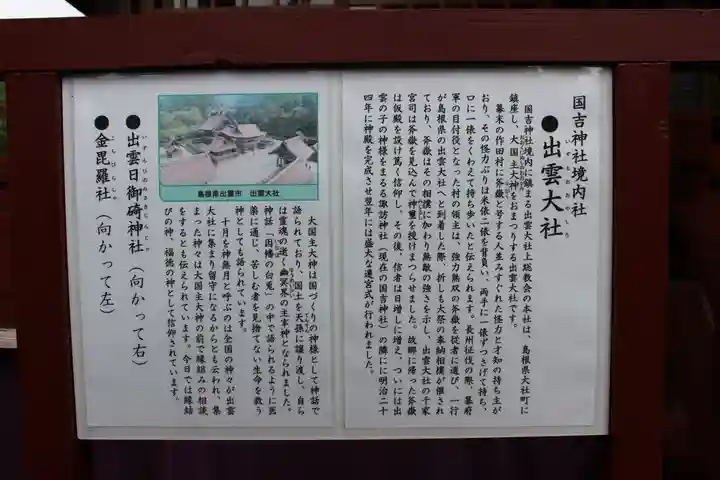 国吉神社境内社
●出雲大社
いずもおおやしろ
国吉神社境内に鎮まる出雲大社上総教会の本社は、島根県大社町に
鎮座し、大国主大神をおまつりする出雲大社です。
幕末の作田村に斧嶽と号する人並みすぐれた怪力と才知の持ち主が
おり、その怪力ぶりは米俵二俵を背負い、両手に一俵ずつさげて持ち、
口に一俵をくわえて持ち歩いたと伝えられます。長州征伐の際、幕府
軍の目付役となった村の領主は、強力無双の斧嶽を従者に選び、一行
が島根県の出雲大社へと到着した際、折しも大祭の奉納相撲が催され
ており、斧嶽はその相撲に加わり無敵の強さを示し、出雲大社の千家
宮司は斧嶽を見込んで神璽を授けまつらせました。故郷に帰った斧嶽
は仮殿を設け篤く信仰し、その後、信者は日増しに増え、ついには出
雲の子の神様をまつる諏訪神社（現在の国吉神社）の隣にに明治二十
四年に神殿を完成させ翌年には盛大な遷宮式が行われました。
島根県出雲市　出雲大社
大国主大神は国づくりの神様として神話で
語られており、国土を天孫に譲り渡し、自ら
は霊魂の逝く幽冥界の主宰神となられました。
神話「因幡の白兎」の中で語られるように医
薬に通じ、苦しむ者を見捨てない生命を救う
神としても語られています。
十月を神無月と呼ぶのは全国の神々が出雲
大社に集まり留守になるからとも云われ、集
まった神々は大国主大神の前で縁結みの相談
をするとも伝えられています。今日では縁結
びの神、福徳の神として信仰されています。
●出雲日御碕神社（向かって右）
いずもひのみさきじんじゃ
●金毘羅社（向かって左）
こんぴらしゃ